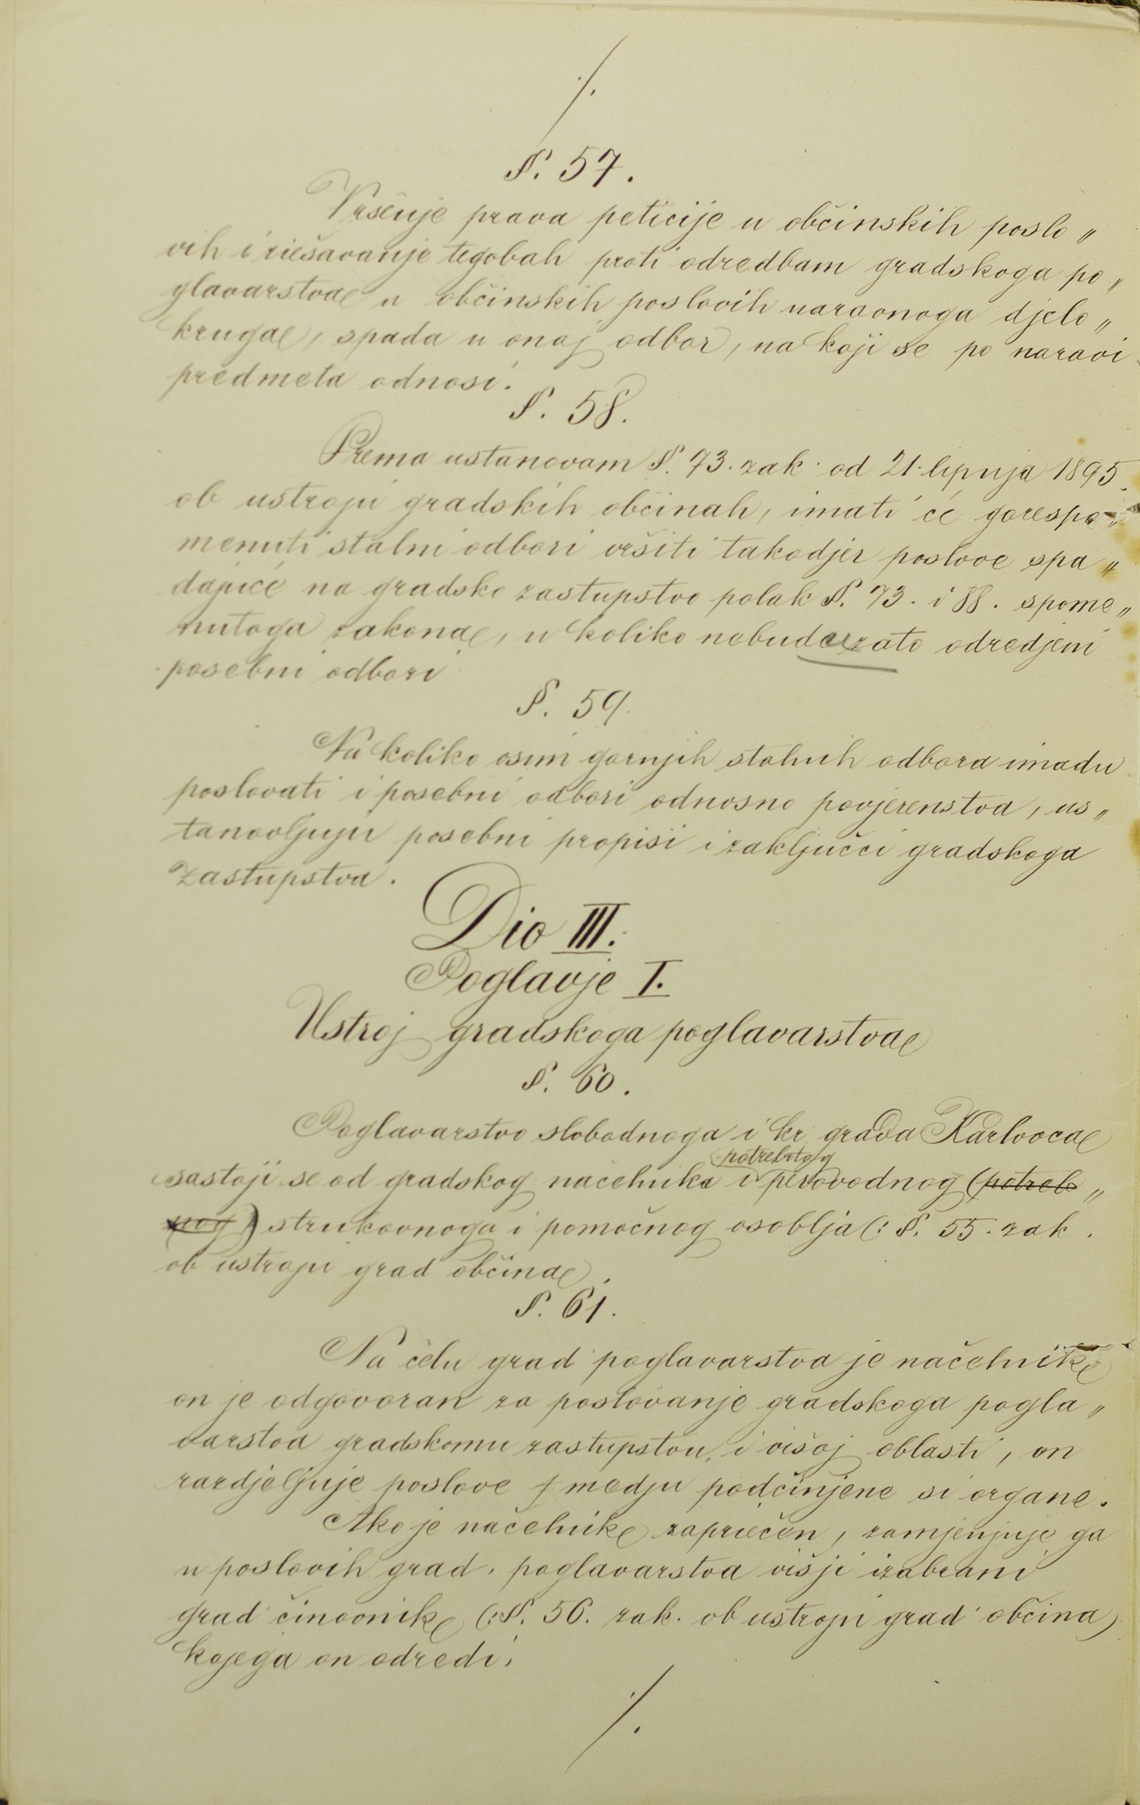 ./.
§. 57.
Vršenje prava peticije u občinskih poslo„
vih i riešavanje tegobah proti odredbam gradskoga po„
glavarstva u občinskih poslovih naravnoga djelo„
kruga, spada u onaj odbor, na koji se po naravi
predmeta odnosi.
§. 58.
Prema ustanovam §. 73. zak. od 21. lipnja 1895.
ob ustroju gradskih občinah, imati će gorespo„
menuti stalni odbori vršiti takodjer poslove spa„
dajuće na gradsko zastupstvo polak §. 73. i 88. spome„
nutoga zakona, u koliko nebudu zato odredjeni
posebni odbori
§. 59.
Na koliko osim gornjih stalnih odbora imadu
poslovati i posebni odbori odnosno povjerenstva, us„
tanovljuju posebni propisi i zaključci gradskoga
zastupstva.
Dio III.
Poglavje I.
Ustroj gradskoga poglavarstva
§. 60.
Poglavarstvo slobodnoga i kr. grada Karlovca
potrebitog
sastoji se od gradskog načelnika i perovodnog (potreb„
nog) strukovnoga i pomoćnog osoblja (: §. 55. zak.
ob ustroju grad občina).
§. 61.
Na čelu grad poglavarstva je načelnik
on je odgovoran za poslovanje gradskoga pogla„
varstva gradskomu zastupstvu, i višoj oblasti, on
razdjeljuje poslove medju podčinjene si organe.
Ako je načelnik zapriečen, zamjenjuje ga
u poslovih grad. poglavarstva višji izabrani
grad činovnik (: §. 56. zak. ob ustroju grad občina)
kojega on odredi.
./.